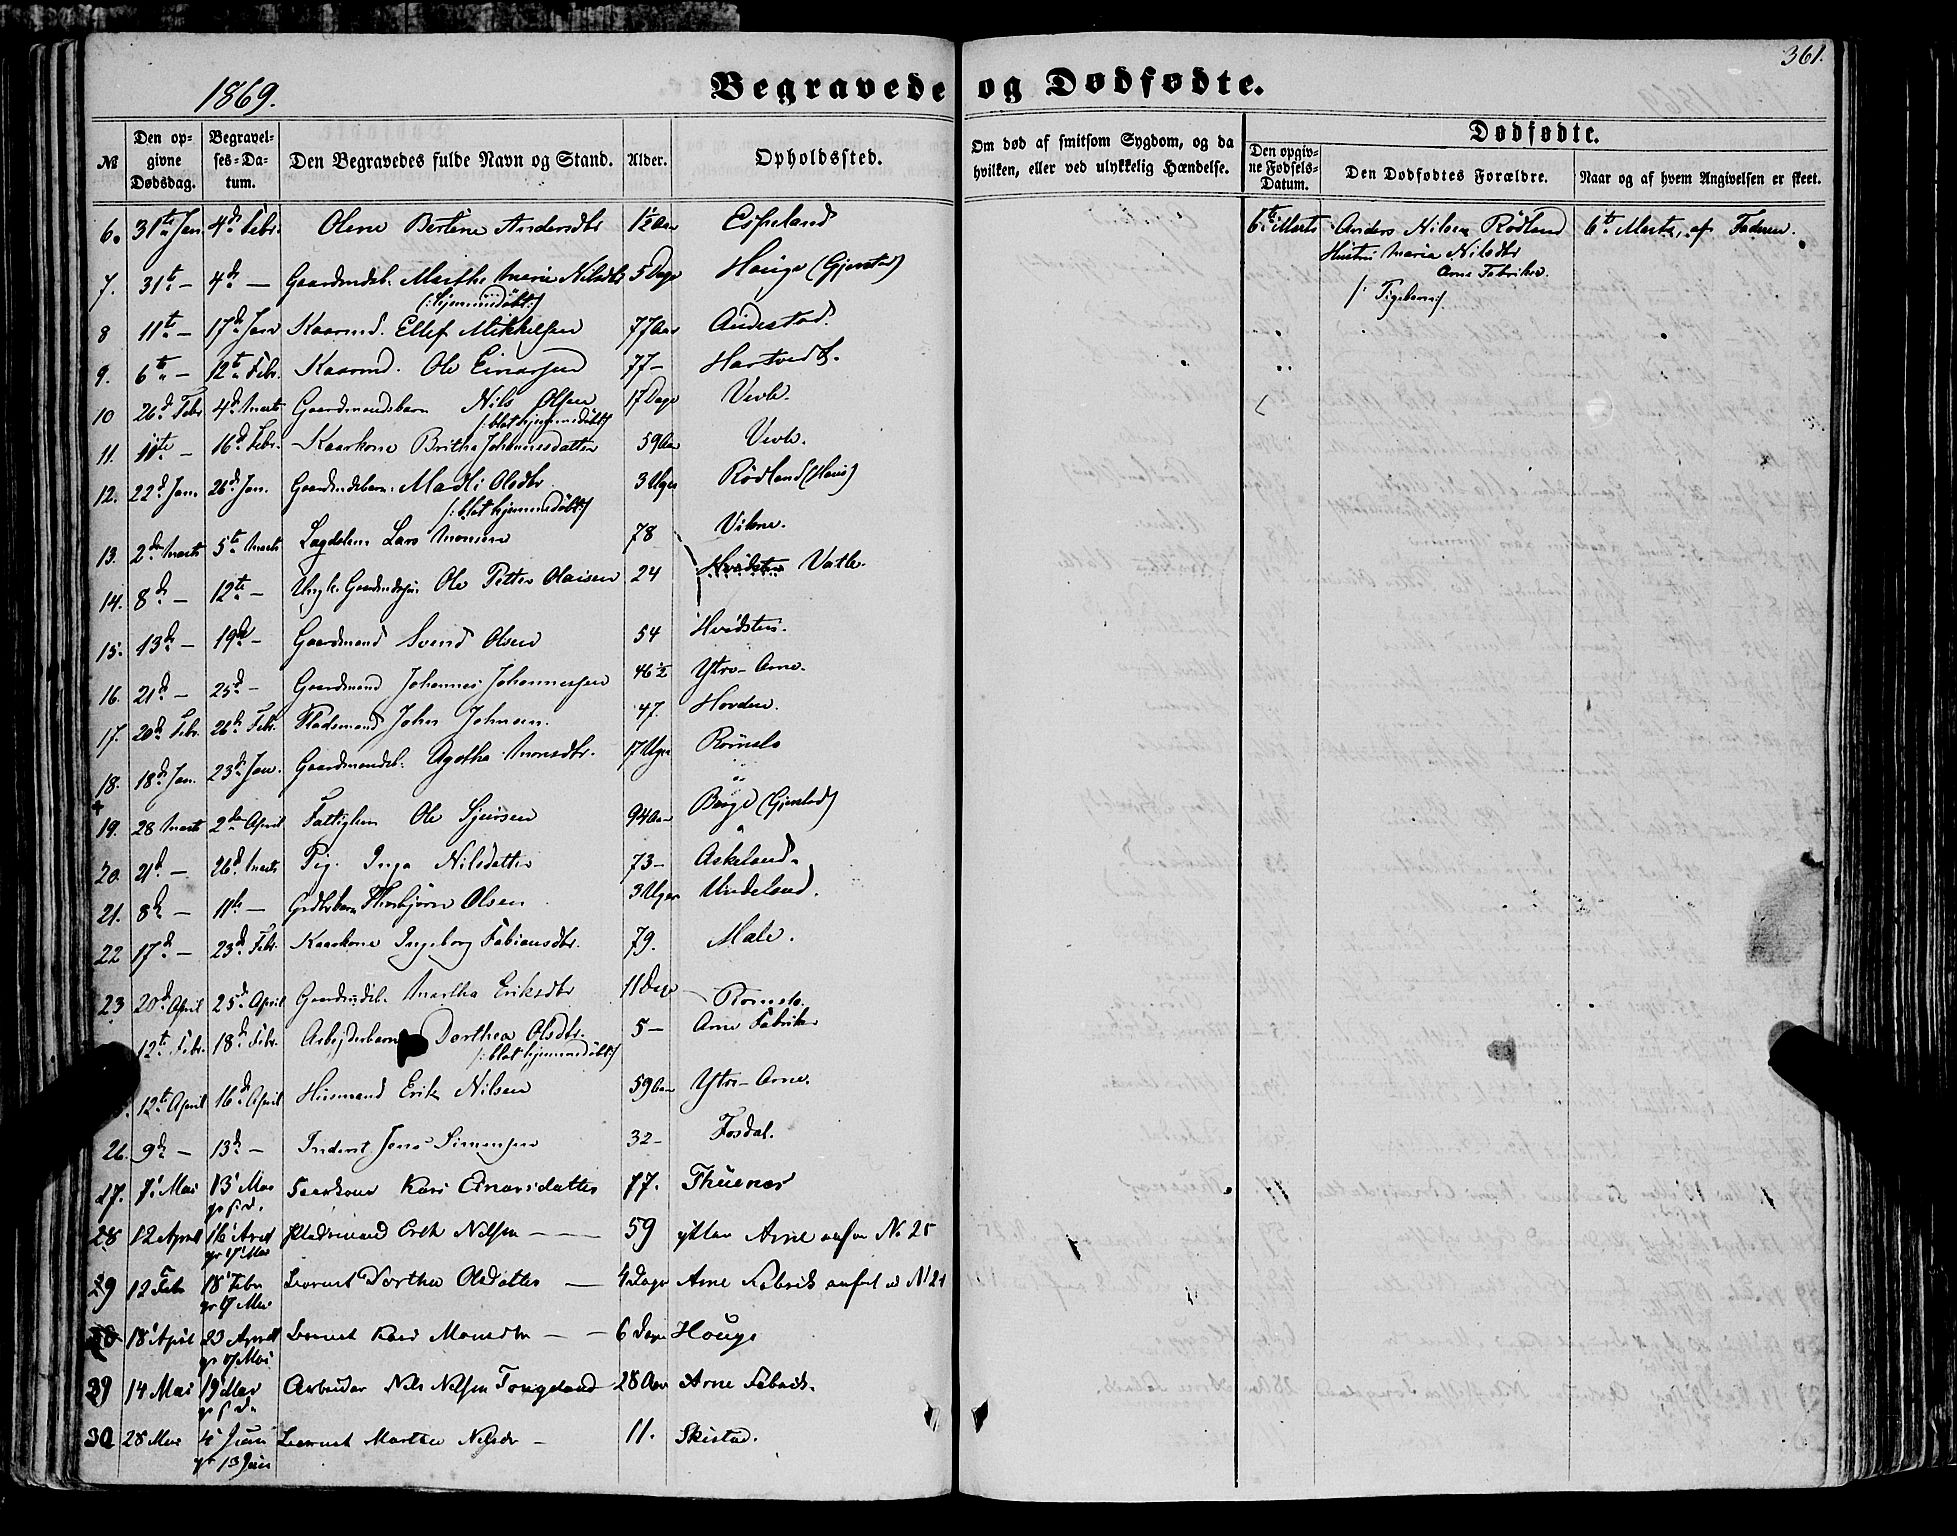 1869.
Begravede og Dødfødte.
361.
№
Den opgivne Dødsdag.
Begravelses-Datum.
Den Begravedes fulde Navn og Stand.
Alder.
Opholdssted.
Om død af smitsom Sygdom, og da hvilken, eller ved ulykkelig Hændelse.
Dødfødte.
Den opgivne Fødsels-Datum.
Den Dødfødtes Forældre.
Naar og af hvem Angivelsen er skeet.
6. 31te Jan 4de Febr. Olene Bertine Andersdtr 1½ Aar Espeland
6te Marts Anders Nilsen Rødland 6te Marts, af Faderen.
Hustru Maria Nilsdtr
Arne Fabriker.
/: Pigebarn :/
7. 31te — 4de — Gaardmdsb. Marthe Marie Nilsdtr 5 Dage Hauge (Gjerstad)
/: hjemmedøbt :/
8 11te — 17de Jan Kaarmd. Ellef Mikkelsen 77 Aar Andestad.
9. 6te — 12te Febr. Kaarmd. Ole Einarsen 77 — Hartvedt.
10 26de Febr 4de Marts Gaardmandsbarn Nils Olsen 17 Dage Vevle.
/: blot hjemmedøbt :/
11. 11te — 16de Febr. Kaarkone Britha Johannesdatter 59 Aar Vevle.
12. 22de Jan 26de Jan. Gaardmdsbarn Madli Olsdtr 3 Uger Rødland (Haus)
/: blot hjemmedøbt :/
13. 2den Marts 5te Marts Lægdslem Lars Monsen 78 Vikne.
14. 8de — 12te — Ungk. Gaardmdssøn Ole Petter Olaisen 24 Hvidsten Vatle.
15. 13de — 19de — Gaardmand Svend Olsen 54 Hvidsten.
16. 21de — 25de — Gaardmand Johannes Johannessen 46½ Ytre-Arne.
17. 20de Febr. 26de Febr. Pladsmand John Johnsen. 47. Hovden.
18. 18de Jan. 23de Jan. Gaardmandsb. Agatha Monsdtr. 17 Uger Romslo
19. 28 Marts 2den April Fattiglem Ole Sjursen 94 Aar Børge (Gjerstad)
20. 21de — 26de Marts Pig. Inga Nilsdatter 73 — Askeland.
21. 8de — 11te — Grdbrbarn Thorbjørn Olsen 3 Uger Undeland.
22 17de — 23de Febr. Kaarkone Ingeborg Fabiansdtr. 79. Male.
23 20de April 25de April Gaardmdsb. Martha Eriksdtr 11 Dage Romslo.
12te Febr. 18de Febr. Arbejderbarn Dorthea Olsdtr. 5 — Arne Fabrik
/: blot hjemmedøbt :/
12te April 16de April Huusmand Erik Nilsen 59 Aar Ytre-Arne.
26. 9de — 13de — Inderst Jens Simensen 32 — Fosdal.
27. 7' Mai 13' Mai Kaarkone Kari Einarsdatter 77. Thuenes
28 12 April 16' April Pladsmand Erik Nilsen — — — 59 ytter Arne anført No 25
29 12 Febr 18' Febr Barnet Dorthea Olsdatter — 4 Dage Arne Fabrik anført No 24
18' April 23 April Barnet Kari Monsdtr — — 6 Dage Houge
29 14 Mai 19' Mai Arbeider Nils Nilsen Tongeland 28 Aar Arne Fabrik.
30 28 Mai 4' Juni Barnet Marthe Nilsdr — 11. Skistad.
13 Juni